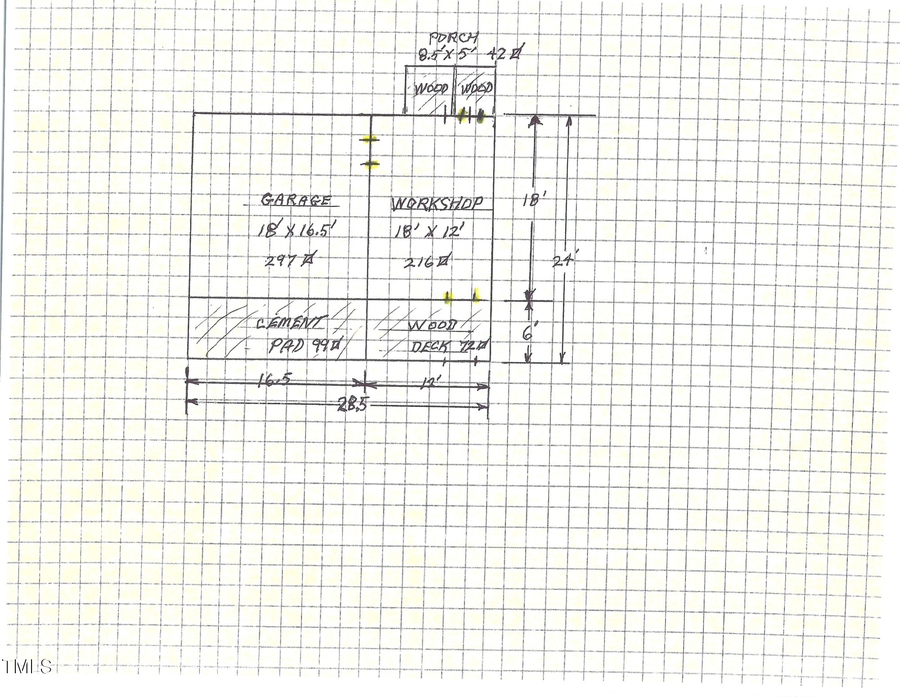 PORCH
8.5' X 5' 42⌷
WOOD WOOD
GARAGE
18' X 16.5'
297⌷
WORKSHOP
18' X 12'
216⌷
18'
24'
CEMENT
PAD 99⌷
WOOD
DECK 72⌷
6'
16.5
12'
28.5
TMLS